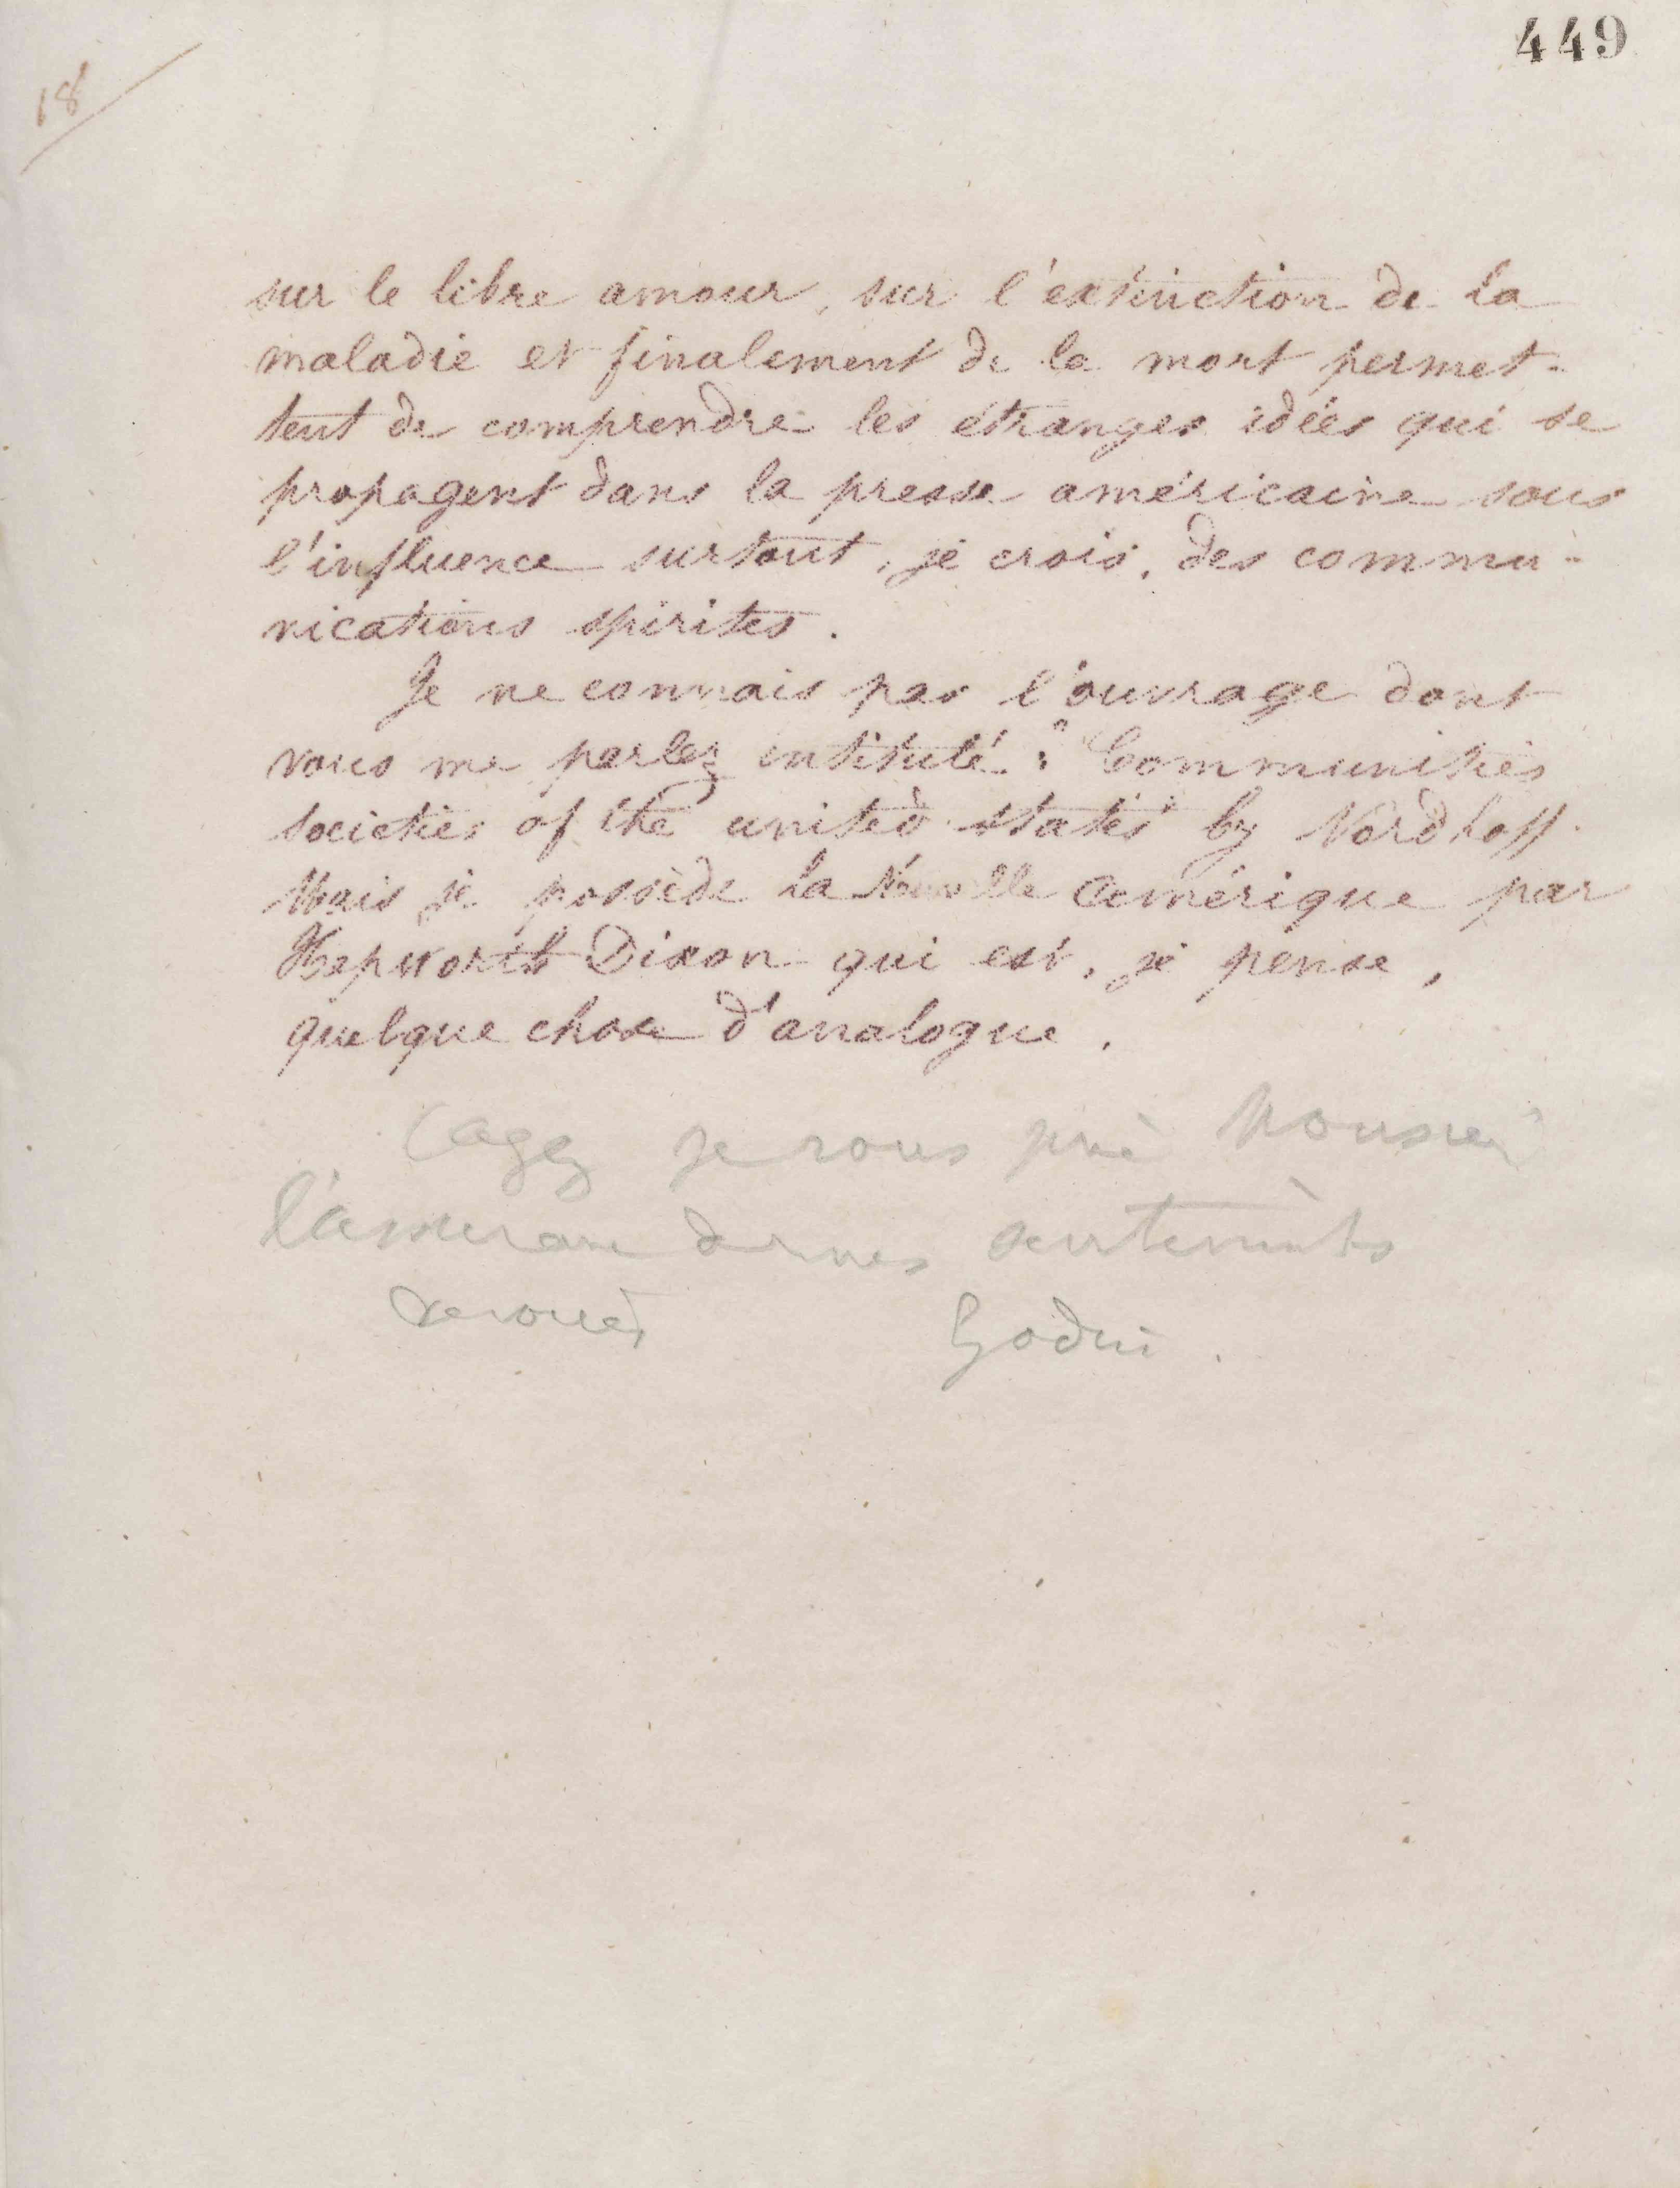 449
18
sur le libre amour, sur l'extinction de la
maladie et finalement de la mort permet-
tent de comprendre les étranges idées qui se
propagent dans la presse américaine sous
l'influence surtout, je crois, des commu-
nications spirites.
Je ne connais pas l'ouvrage dont
vous me parlez intitulé : "Communities
societies of the united states" by Nordhoff.
Mais je possède la Nouvelle Amérique par
Hepworth Dixon qui est, je pense,
quelque chose d'analogue.
je vous prie Monsieur
l'assurance de mes sentiments
dévoués Godin.